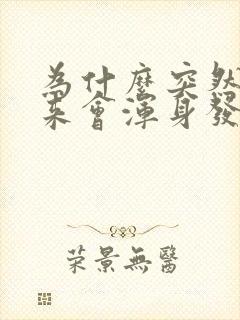 為什麼突然
來會渾身發
榮景無醫